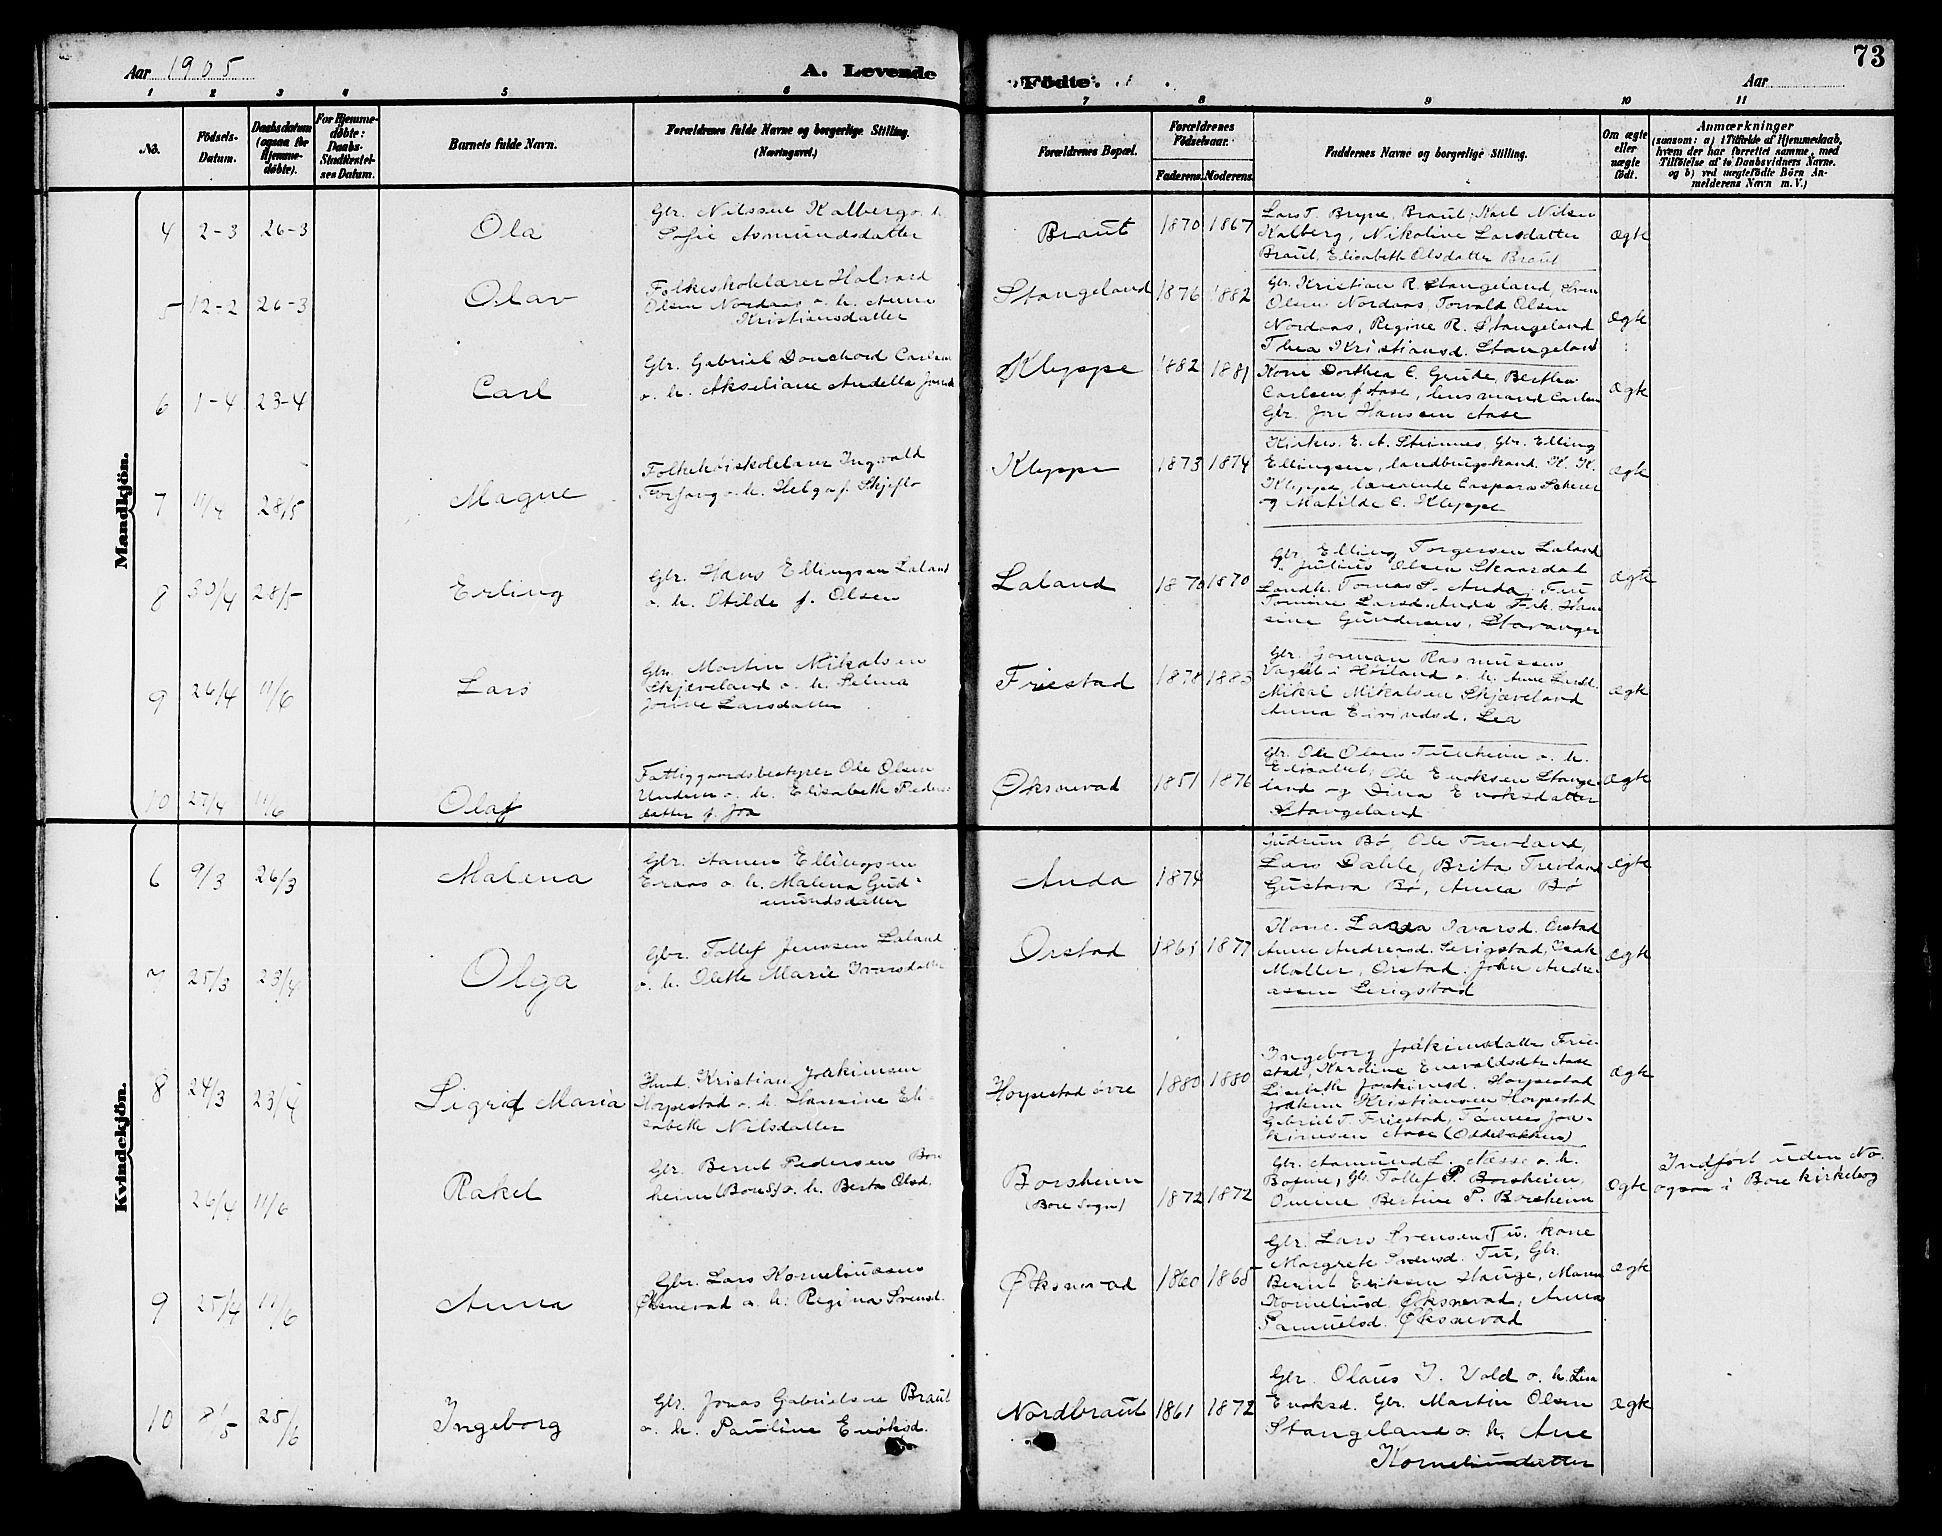 73
Aar 1905
A. Levende
Födte.
Aar
1 2 3 4 5 6 7 8 9 10 11
No.
Födsels-
Datum.
Daabsdatum
(ogsaa for
Hjemme-
døbte).
For Hjemme-
døbte:
Daabs-
Stadfæstel-
ses Datum.
Barnets fulde Navn.
Forældrenes fulde Navne og borgerlige Stilling.
(Næringsvei.)
Forældrenes Bopæl.
Forældrenes
Födselsaar.
Faderens. Moderens.
Faddernes Navne og borgerlige Stilling.
Om ægte
eller
uægte
født.
Anmærkninger
(saasom: a) i Tilfælde af Hjemmedaab,
hvem der har forrettet samme, med
Tilføielse af to Daabsvidners Navne.
og b) ved uægtefødte Börn An-
melderens Navn m. V.)
Mandkjön.
4 2-3 26-3 Ola
Gbr. Nilssen Kalberg o. h.
Sofie Asmundsdatter
Braut 1870 1867
Lars T. Bryne, Braut, Karl Nilsen
Kalberg, Nikoline Larsdatter
Braut, Elisabeth Olsdatter Braut
Ægte
5 12-2 26-3 Olav
Folkeskolelærer Halvard
Olsen Nordaas o. h. Anne
Kristiansdatter
Stangeland 1876 1882
Gbr. Kristian R. Stangeland, Sven
Olsen Nordaas, Torvald Olsen
Nordaas, Regine R. Stangeland
Thea Kristiansd. Stangeland
Ægte
6 1-4 23-4 Carl
Gbr. Gabriel Carlsen
o. h. Akseliane
Kleppe 1882 1881
Kone Dorthea C. Grude, Bertha
Carlsen f Aase, lensmand Carlsen
Gbr. Jon Hansen Aase
Ægte
7 11/4 28/5 Magne
Folkehøiskolelærer Ingvald
Forfang o. h. Helga f. Skjeflo
Kleppe 1873 1874
Kirkes. E. A. Steinnes, Gbr. Elling
Ellingsen, landbrugskand. K. K.
Kleppe, lærerinde Caspara Scherer
og Matilde C. Kleppe
Ægte
8 30/4 28/5 Erling
Gbr. Hans Ellingsen Laland
o. h. Otilde f. Olsen
Laland 1870 1870
Gbr. Elling Torgersen Laland
Julius Olsen Skaardal
Landh. Tomas S. Anda, Fru
Tomine Larsd. Anda Frk. Han
sine Gundersen, Stavanger
Ægte
9 26/4 11/6 Lars
Gbr. Martin Mikalsen
Skjæveland o. h. Selma
Jonne Larsdatter
Friestad 1878 1883
Gbr. Gorman Rasmussen
Vagle i Høiland o. h. Ane Larsd.
Mikal Mikalsen Skjæveland
Anna Eivindsd. Lea
Ægte
10 27/4 11/6 Olaf
Fattiggaardsbestyrer Ole Olsen
Undem o. h. Elisabeth Peders
datter f. Joa
Øksnevad 1851 1876
Gbr. Ole Olsen Tunheim o. h.
Elisabet, Ole Enoksen Stange
land og Dina Enoksdatter
Stangeland
Ægte
Kvindekjön.
6 9/3 26/3 Malena
Gbr. Aanen Ellingsen
Eraas o. h. Malena Gud-
mundsdatter
Anda 1874
Gudrun Bø, Ole Trevland,
Lars Dahle, Brita Trevland
Gustava Bø, Anna Bø
Ægte
7 25/3 23/4 Olga
Gbr. Tollef Jenssen Laland
o. h. Olette Marie Ivarsdatter
Orstad 1865 1877
Kone Laura Ivarsd. Orstad
Anne Andreasd. Serigstad, Isak
Maller, Orstad. John Andre-
assen Serigstad
Ægte
8 24/3 23/4 Sigrid Maria
Husd. Kristian Joakimsen
Horpestad o. h. Hansine Eli-
sabeth Nilsdatter
Horpestad övre 1880 1880
Ingeborg Joakimsdatter Frie-
stad, Karoline Enevaldsdtr Aase
Lisbeth Joakimsd. Horpestad
Joakim Kristiansen Horpestad
Gabriel T. Friestad, Tønnes Joa-
kimsen Aase (Oddeløkken)
Ægte
26/4 11/6 Rakel
Gbr. Bernt Pedersen Bors
heim (Bore S) o. h. Berta Olsd.
Borsheim
(Bore Sogn)
1872 1872
Gbr. Asmund L. Næsse o. h.
Bosine, Gbr. Tollef P. Borsheim,
Omine, Bertine P. Borsheim
Ægte
Indført uden No.
ogsaa i Bore kirkebog
9 25/4 11/6 Anna
Gbr. Lars Korneliussen
Øksnevad o. h. Regina Svensd.
Øksnevad 1860 1865
Gbr. Lars Svensen Tu. kone
Margrete Svensd. Tu, Gbr.
Bernt Eriksen Hauge, Maren
Korneliusd. Øksnevad, Anna
Samuelsd. Øksnevad
Ægte
10 8/5 25/6 Ingeborg
Gbr. Jonas Gabrielsen Braut
o. h. Pauline Enoksd.
Nordbraut 1861 1872
Gbr. Olaus I. Vold o. h. Lisa
Enoksd. Gbr. Martin Olsen
Stangeland o. h. Ane
Korneliusdatter
Ægte